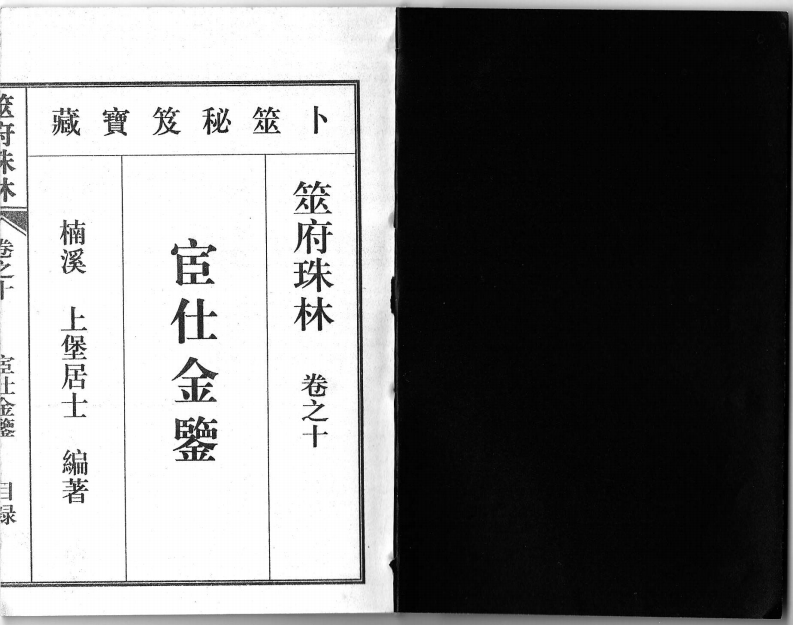 卜筮秘笈寶藏
筮府珠林 卷之十
宦仕金鑒
楠溪 上堡居士 編著
筮府珠林 卷之十 宦仕金鑒 目録